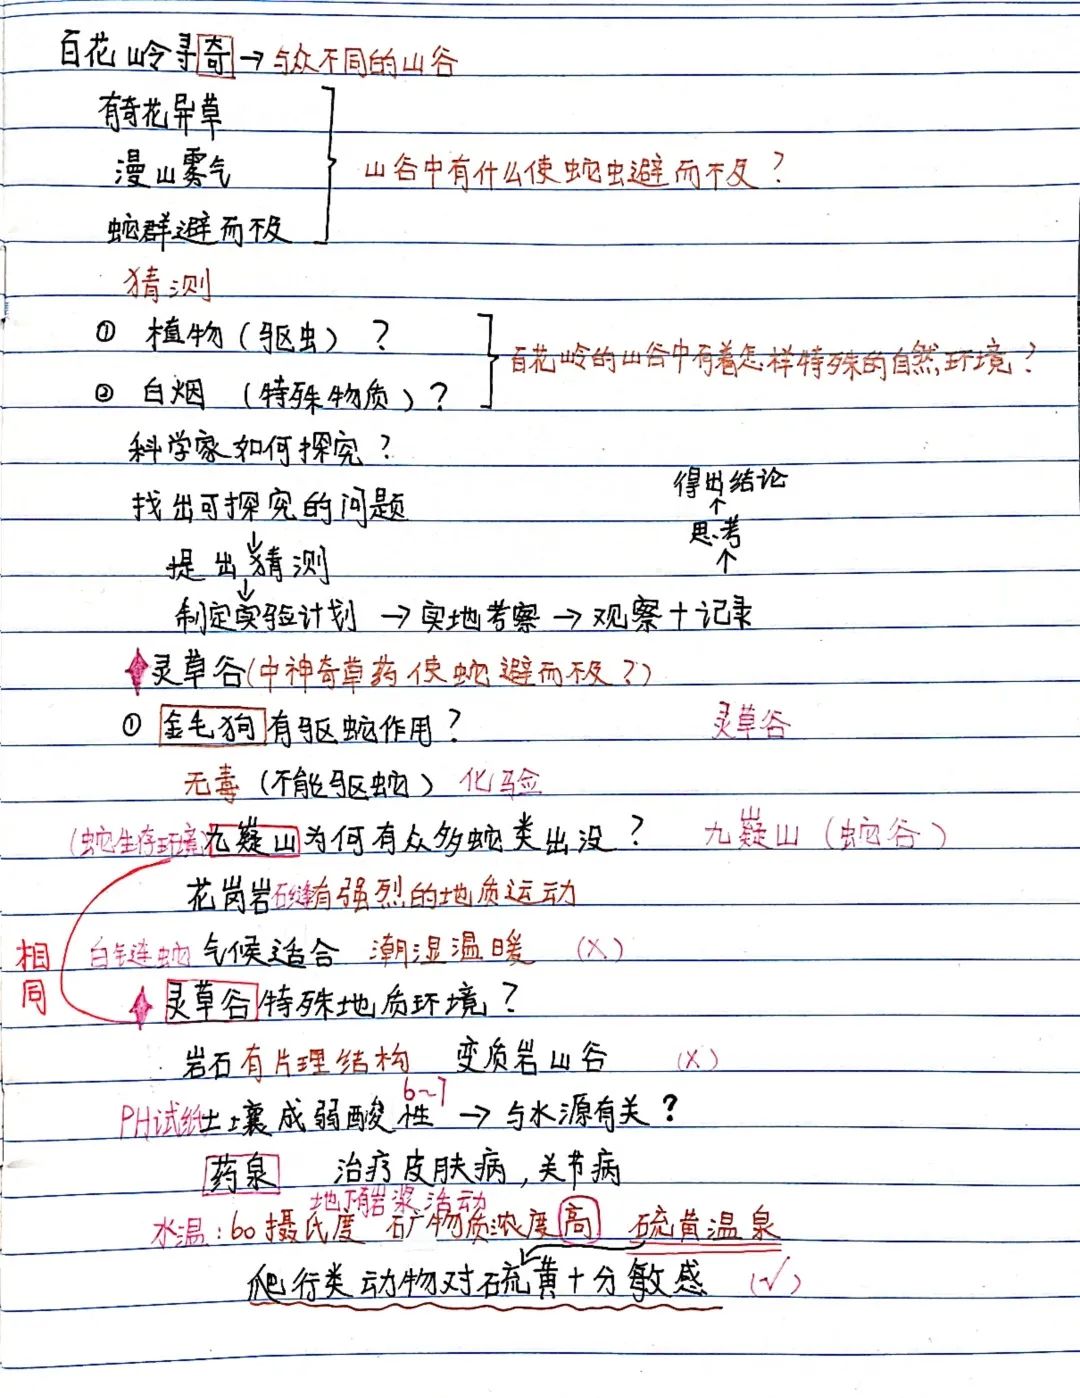 百花岭寻奇→与众不同的山谷
有奇花异草
漫山雾气
山谷中有什么使蛇虫避而不及?
蛇群避而不及
猜测
① 植物(驱虫)?
百花岭的山谷中有着怎样特殊的自然环境?
② 白烟 (特殊物质)?
科学家如何探究?
得出结论
↑
找出可探究的问题
思考
↑
↓
提出猜测
↓
制定实验计划 → 实地考察 → 观察+记录
灵草谷(中神奇草药使蛇避而不及?)
① 金毛狗有驱蛇作用? 灵草谷
无毒(不能驱蛇) 化验
(蛇生存环境)九嶷山为何有众多蛇类出没? 九嶷山(蛇谷)
花岗岩石缝有强烈的地质运动
白链蛇 气候适合 潮湿温暖 (×)
相同
灵草谷特殊地质环境?
岩石有片理结构 变质岩山谷 (×)
6~7
PH试纸土壤成弱酸性 → 与水源有关?
药泉 治疗皮肤病,关节病
地下有岩浆活动
水温:60摄氏度 矿物质浓度高 硫黄温泉
爬行类动物对硫黄十分敏感 (√)